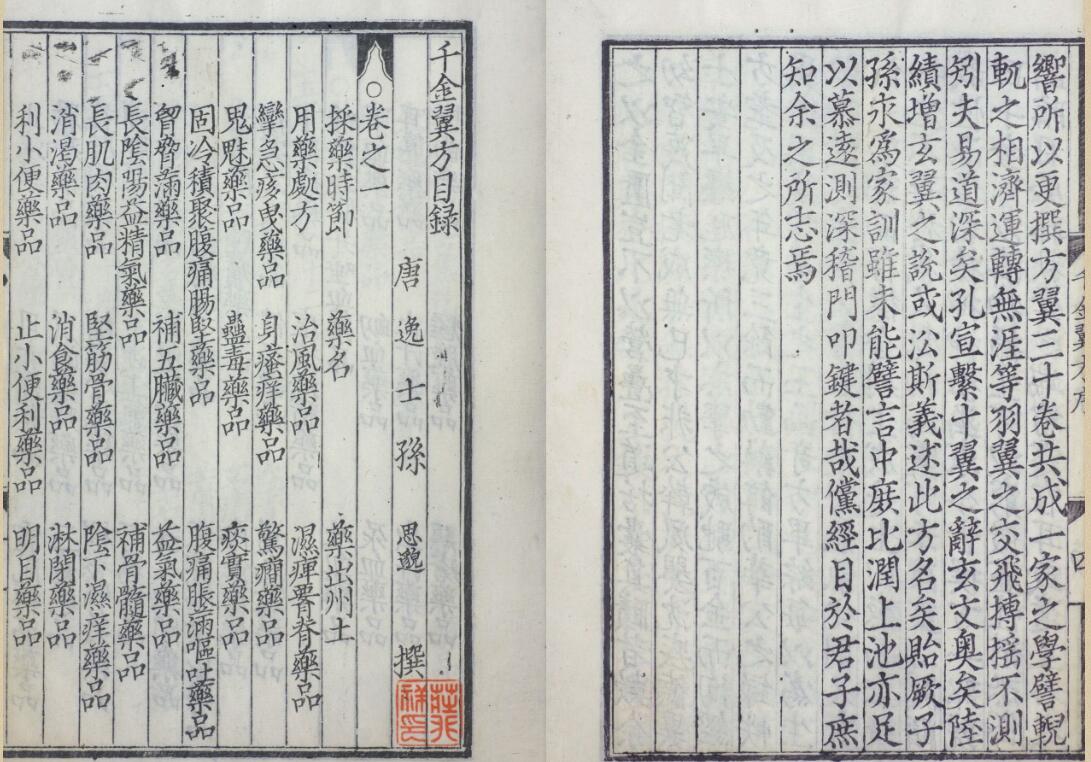 響所以更撰方翼三十卷共成一家之學譬輗
軏之相濟運轉無涯等羽翼之交飛摶搖不測
矧夫易道深矣孔宣繫十翼之辭玄文奥矣陸
績增玄翼之說或沿斯義述此方名矣貽厥子
孫永為家訓雖未能譬言中庻比潤上池亦足
以慕遠測深稽門叩鍵者哉儻經目於君子庶
知余之所志焉
千金翼方序
四
千金翼方目録
唐逸士孫思邈撰
卷之一
採藥時節 藥名 藥出州土
用藥處方 治風藥品 濕痺腰脊藥品
攣急痠曳藥品 身瘙痒藥品 驚癎藥品
鬼魅藥品 蠱毒藥品 痰實藥品
固冷積聚腹痛腸堅藥品 腹痛脹滿嘔吐藥品
胷脅滿藥品 補五臟藥品 益氣藥品
長陰陽益精氣藥品 補骨髓藥品
長肌肉藥品 堅筋骨藥品 陰下濕痒藥品
消渴藥品 消食藥品 淋閉藥品
利小便藥品 止小便利藥品 明目藥品